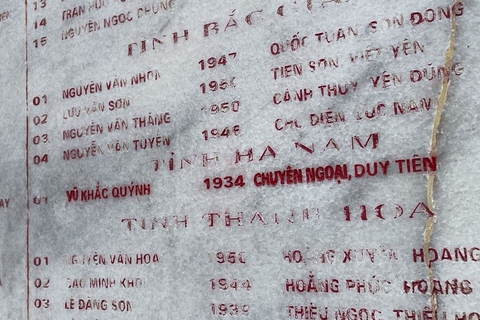 13
14 TRẦN HỮU
15 NGUYỄN NGỌC PHUNG
TỈNH BẮC GIANG
01 NGUYỄN VĂN NHOA 1947 QUỐC TUẤN SƠN ĐÔNG
02 LƯU VĂN SƠN 1950 TIÊN SƠN VIỆT YÊN
03 NGUYỄN VĂN THĂNG 1950 CẢNH THUỴ YÊN DŨNG
04 NGUYỄN VĂN TUYÊN 1948 CHŨ ĐIỀN LỤC NAM
TỈNH HÀ NAM
01 VŨ KHẮC QUỲNH 1934 CHUYÊN NGOẠI, DUY TIÊN
TỈNH THANH HOÁ
01 NGUYỄN VĂN HOA 950 HOẰNG HOANG
02 CAO MINH KHÔI 1944 HOẰNG PHÚC HOANG
03 LÊ ĐĂNG SƠN 1939 THIỆU NGỌC THIỆU HO